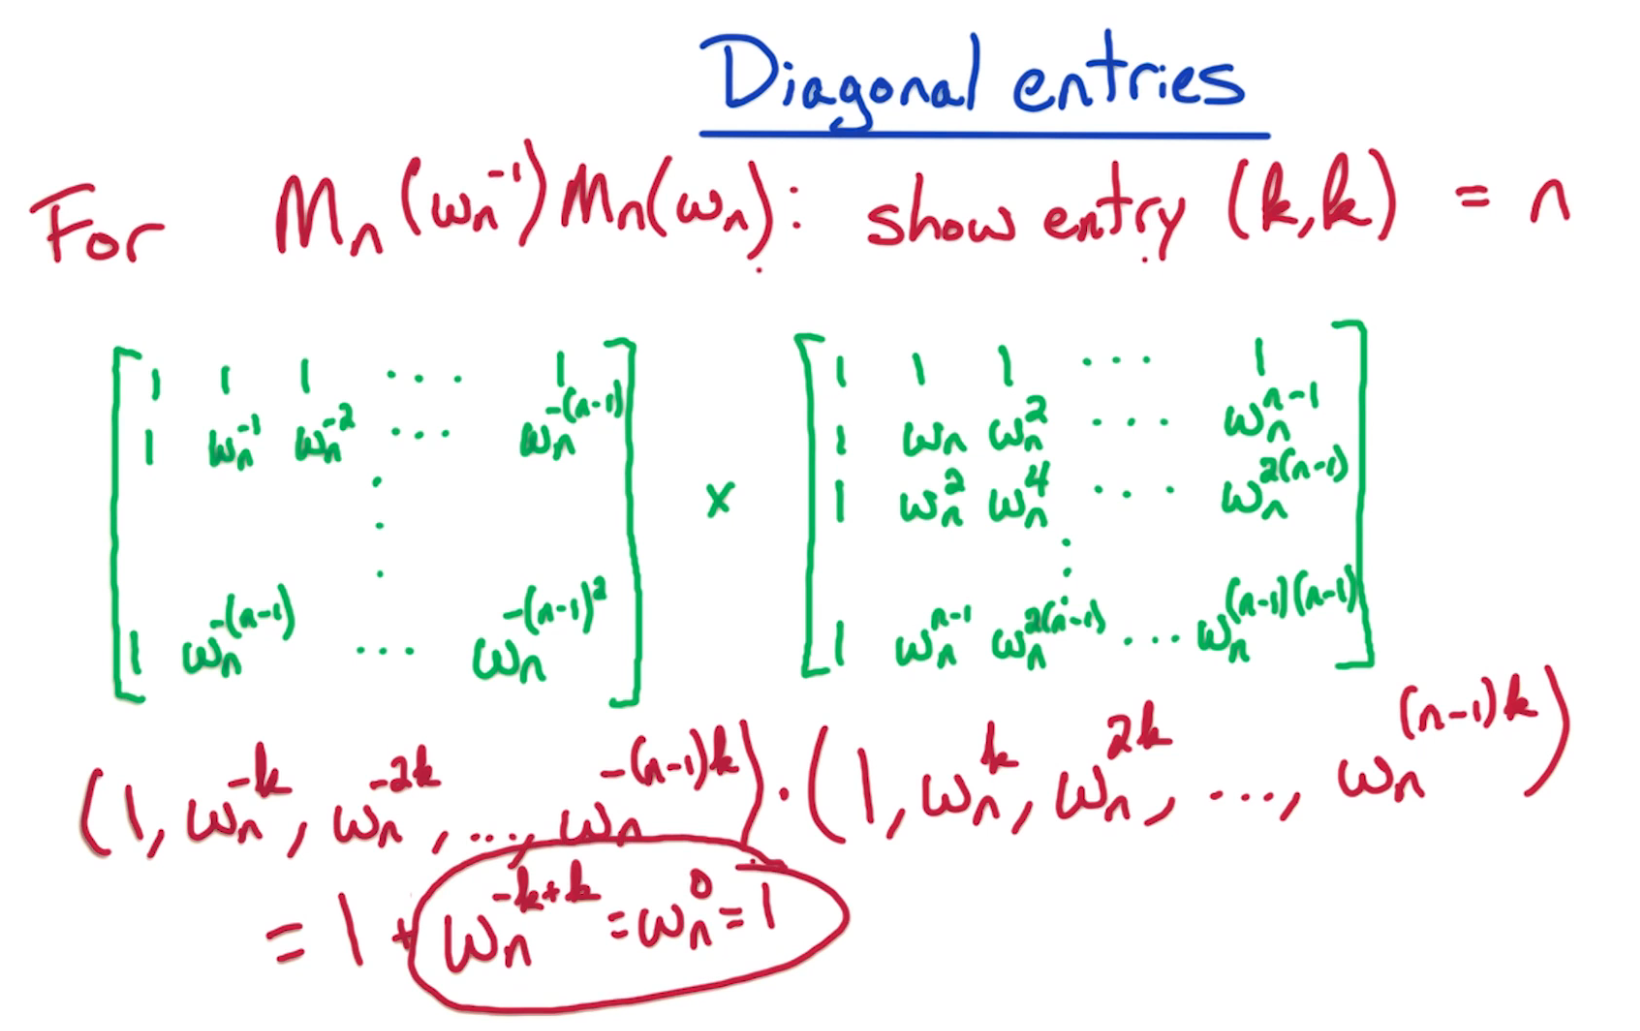 Diagonal entries
For Mₙ(ωₙ⁻¹)Mₙ(ωₙ): show entry (k,k) = n
[1 1 1 ··· 1] × [1 1 1 ··· 1]
[1 ωₙ^-1 ωₙ^-2 ··· ωₙ^-(n-1)] [1 ωₙ ωₙ^2 ··· ωₙ^n-1]
[1 ωₙ^2 ωₙ^4 ··· ωₙ^2(n-1)]
[1 ωₙ^-(n-1) ··· ωₙ^-(n-1)^2] [1 ωₙ^n-1 ωₙ^2(n-1) ··· ωₙ^(n-1)(n-1)]
(1, ωₙ^-k, ωₙ^-2k, ..., ωₙ^-(n-1)k) · (1, ωₙ^k, ωₙ^2k, ..., ωₙ^(n-1)k)
= 1 + ωₙ^-k+k = ωₙ^0 = 1